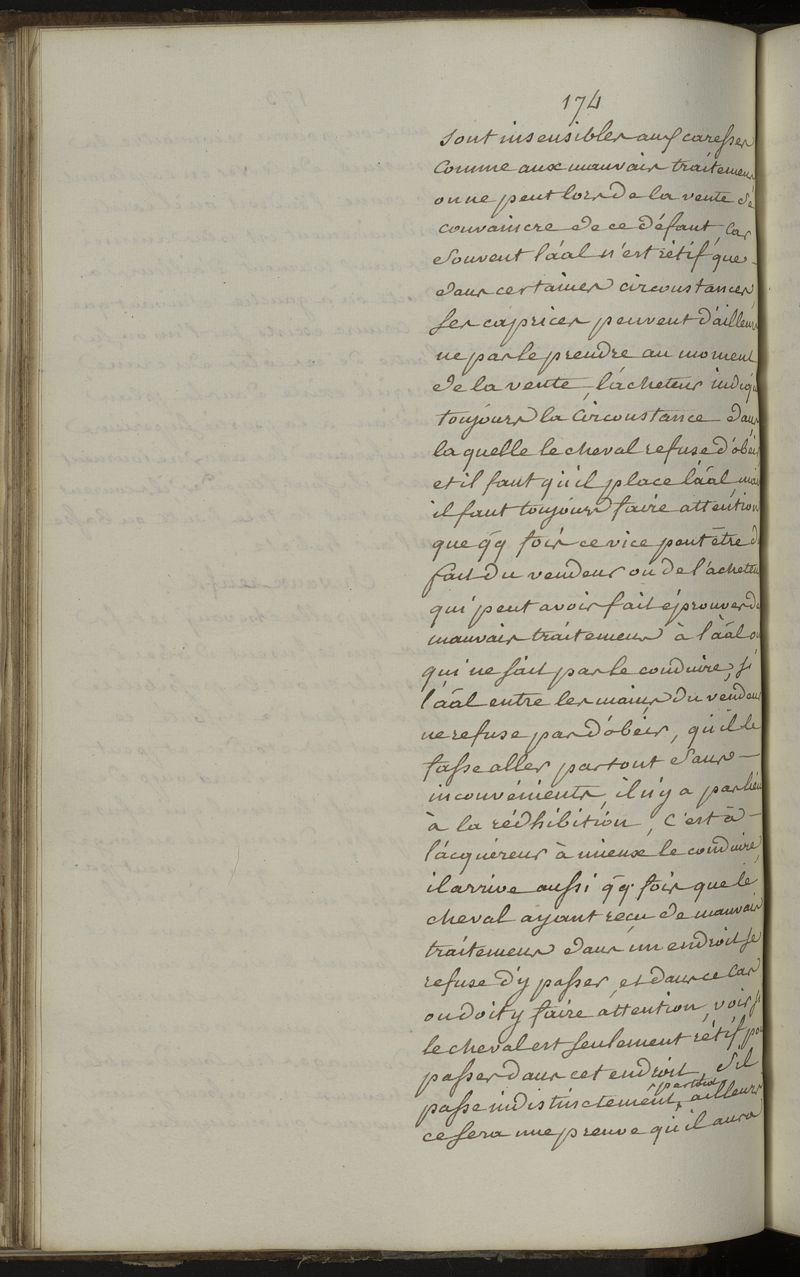 174
sont insensibles aux caresses
comme aux mauvais traitemens
on ne peut lors de la vente se
convaincre de ce défaut, car
souvent l'áal n'est rétif que
dans certaines circonstances,
ses caprices peuvent d'ailleurs
ne pas le prendre au moment
de la vente, l'acheteur indiqu
toujours la circonstance dans
la quelle le cheval refuse d'obéir
et il faut qu'il place l'áal, mais
il faut toujours faire attention
que qq fois ce vice peut être d
fait du vendeur ou de l'acheteu
qui peut avoir fait éprouver de
mauvais traitemens à l'áal ou
qui ne sait pas le conduire, si
l'áal entre les mains du vendeur
ne refuse pas d'obéir, qu'il le
fasse aller partout sans
inconvénients, il n'y a pas lieu
à la rédhibition, c'est à
l'acquéreur à mieux le conduire,
il arrive aussi qq fois que le
cheval ayant reçu de mauvais
traitemens dans un endroit se
refuse d'y passer, et dans ce cas
on doit y faire attention, voir si
le cheval est seulement rétif pou
passer dans cet endroit, s'il
passe indistinctement partout ailleurs
ce sera une preuve qu'il aura